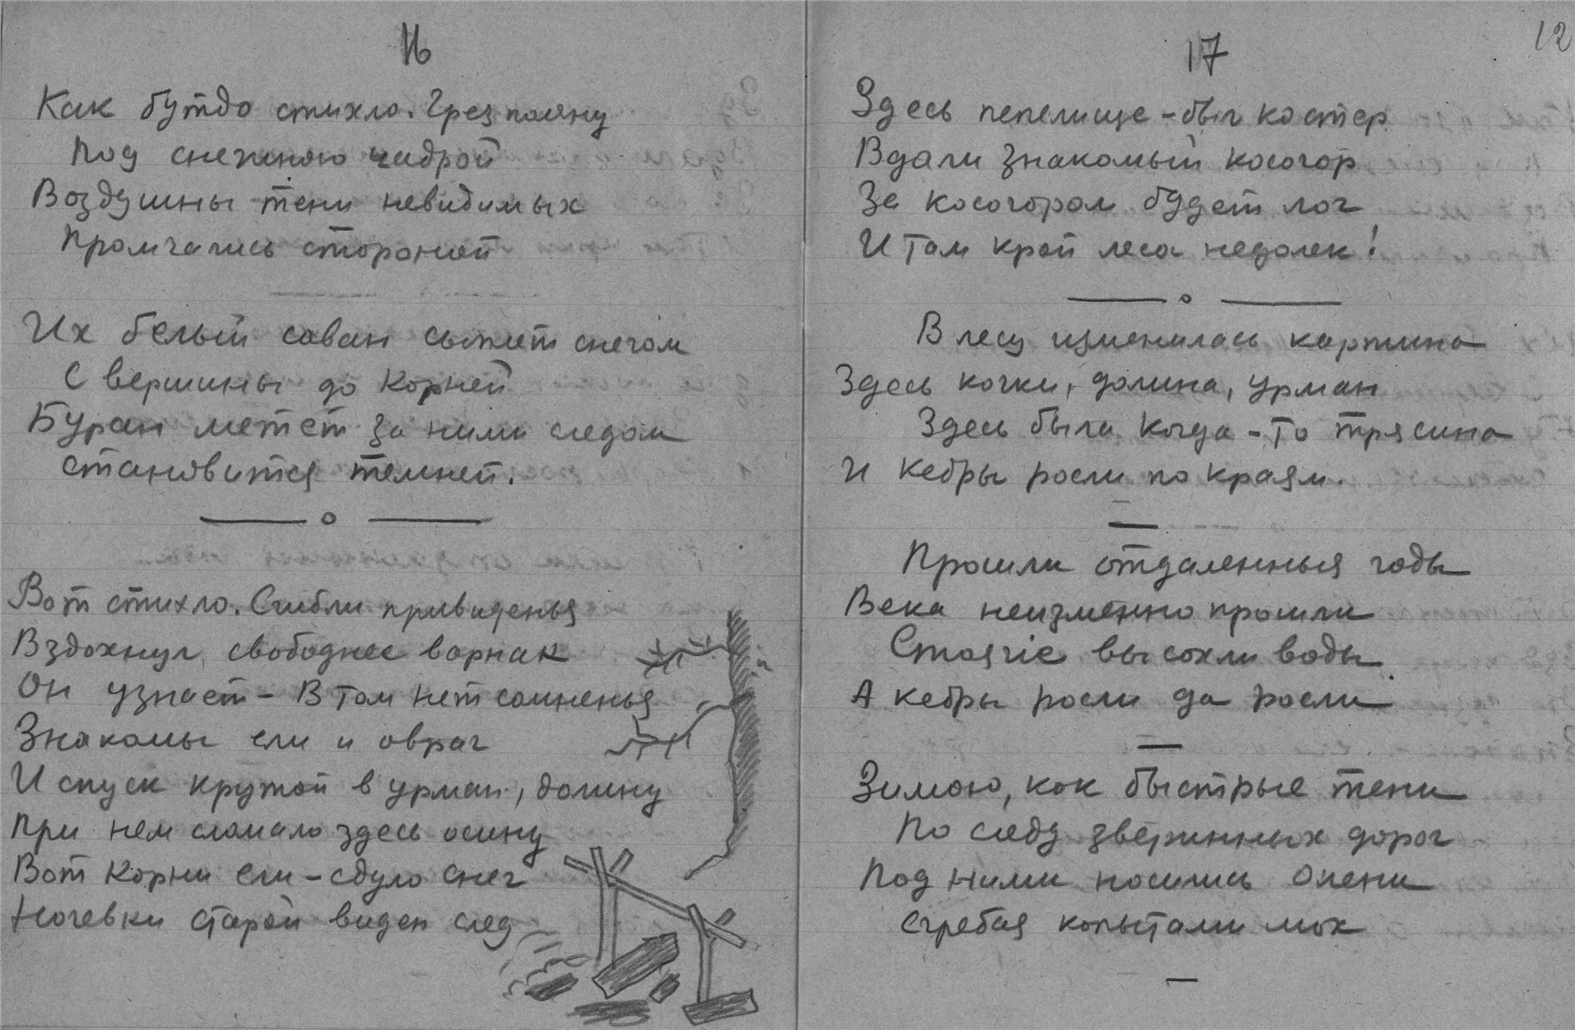 16
Как бутдо стихло. Чрез поляну
Под снежною чадрой
Воздушны тени невидимых
Промчались стороной
Их белый саван сыплет снегом
С вершины до корней
Буран метет за ними следом
Становится темней.
Вот стихло. Сгибли привиденья
Вздохнул свободнее варнак
Он узнает - В том нет сомненья
Знакомы ели и овраг
И спуск крутой в урман, долину
При нем сломало здесь осину
Вот корни ели - сдуло снег
Ночевки старой виден след
17
12
Здесь пепелище - был костер
Вдали знакомый косогор
За косогором будет лог
И там край леса недалек!
В лесу изменилась картина
Здесь кочки, долина, урман
Здесь была когда-то трясина
И кедры росли по краям.
Прошли отдаленныя годы
Века неизменно прошли
Стоячie высохли воды
А кедры росли да росли
Зимою, как быстрые тени
По следу зверинных дорог
Под ними носились олени
Сгребая копытами мох